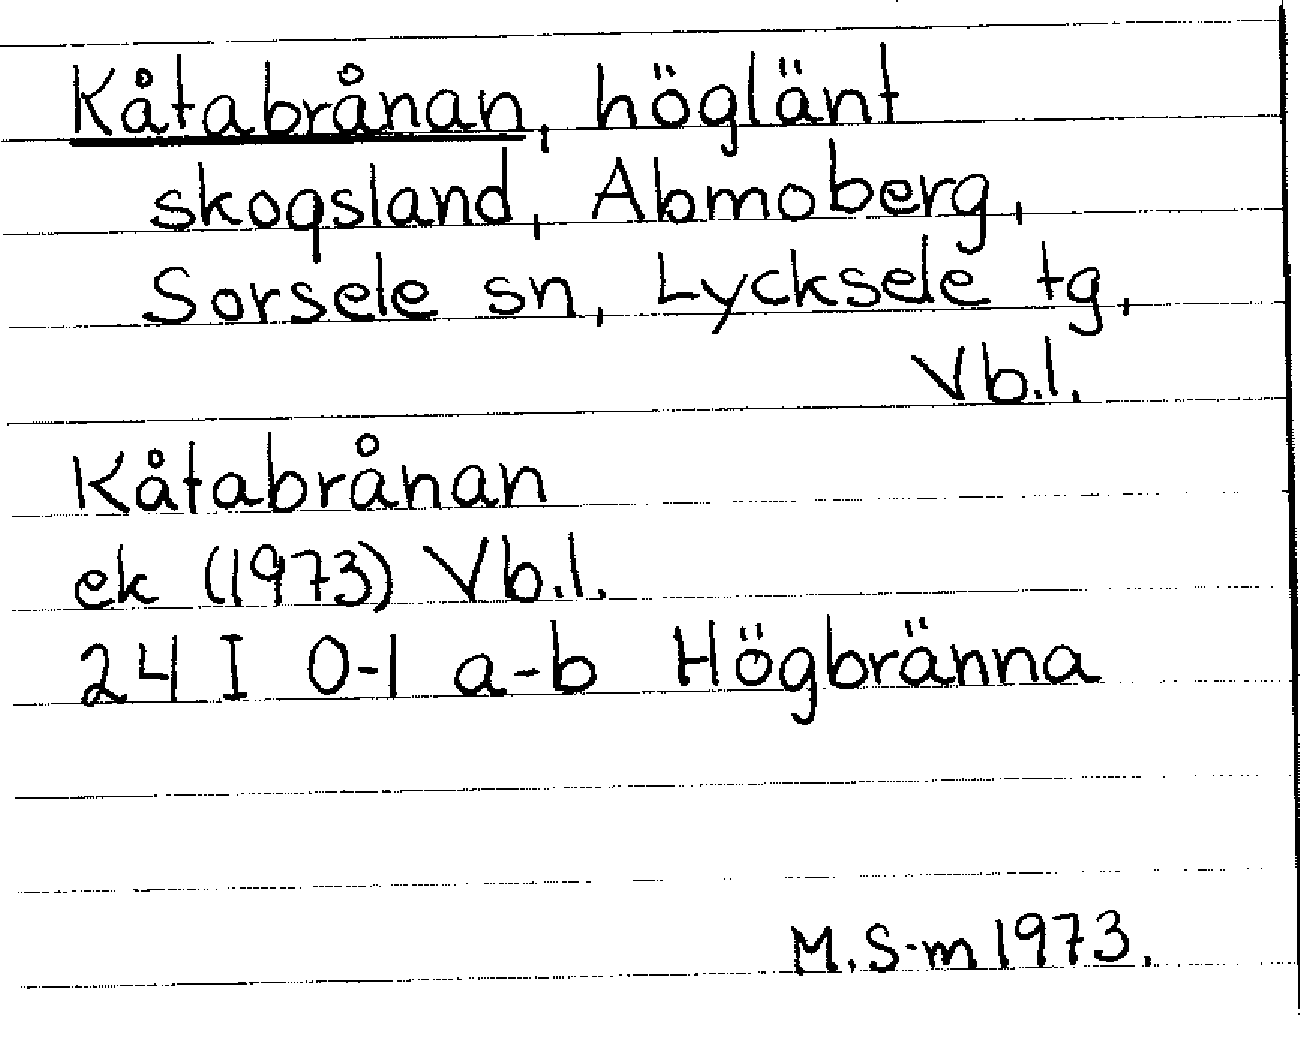 Kåtabrånan, höglänt
skogsland, Abmoberg,
Sorsele sn, Lycksele tg,
Vb.l.
Kåtabrånan
ek (1973) Vb.l.
24 I 0-1 a-b Högbränna
M.S-m 1973.